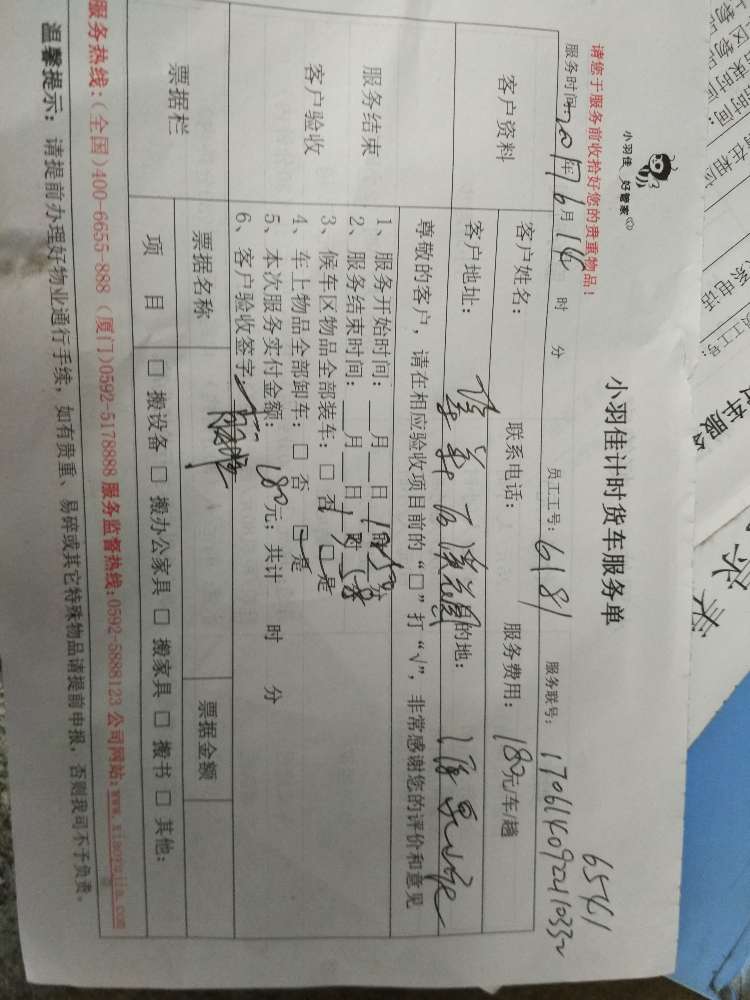 小羽佳 好管家
小羽佳计时货车服务单
6541
请您于服务前收拾好您的贵重物品!
服务时间: 2017年 6月 14 时 分 员工工号: 6181 服务联号: 170614092410332
客户资料 客户姓名: 联系电话: 服务费用: 180元/车/趟
客户地址: 目的地:
尊敬的客户, 请在相应验收项目前的“□”打“√”, 非常感谢您的评价和意见
服务结束
客户验收
1、服务开始时间: __月__日
2、服务结束时间: __月__日
3、候车区物品全部装车: □ 否 □ 是
4、车上物品全部卸车: □ 否 □ 是
5、本次服务实付金额: 180元; 共计 时 分
6、客户验收签字:
票据栏 票据名称 票据金额
项 目 □ 搬设备 □ 搬办公家具 □ 搬家具 □ 搬书 □ 其他:
服务热线:(全国)400-6655-888 (厦门)0592-5178888 服务监督热线:0592-5888123 公司网站:www.xiaoyujia.com
温馨提示: 请提前办理好物业通行手续, 如有贵重、易碎或其它特殊物品请提前申报, 否则我司不予负责。